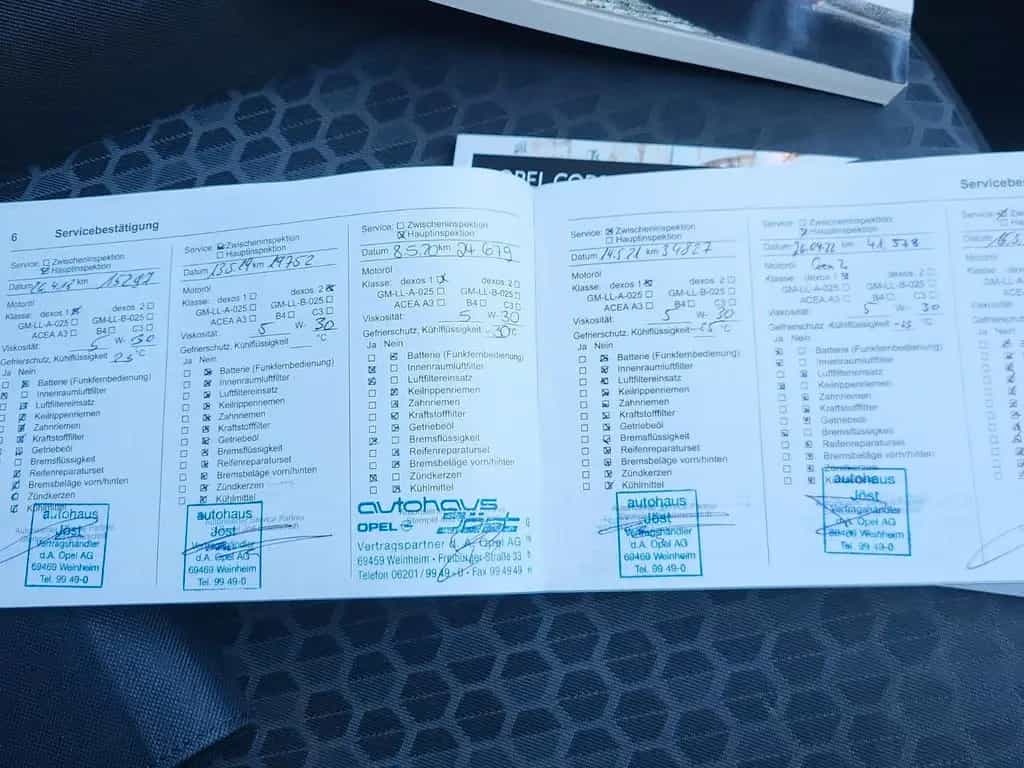 OPEL
6 Servicebestätigung
Service: ☐ Zwischeninspektion
☒ Hauptinspektion
Datum km
Motoröl
Klasse: dexos 1 ☒ dexos 2 ☐
GM-LL-A-025 ☐ GM-LL-B-025 ☐
ACEA A3 ☐ B4 ☐ C3 ☐
Viskosität: 5 W- 30
Gefrierschutz, Kühlflüssigkeit 25 °C
Ja Nein
Batterie (Funkfernbedienung)
Innenraumluftfilter
Luftfiltereinsatz
Keilrippenriemen
Zahnriemen
Kraftstofffilter
Getriebeöl
Bremsflüssigkeit
Reifenreparaturset
Bremsbeläge vorn/hinten
Zündkerzen
autohaus
Jöst
Vertragshändler
d.A. Opel AG
69469 Weinheim
Tel. 99 49-0
Service: ☒ Zwischeninspektion
☐ Hauptinspektion
Datum 13.5.19 km 19752
Motoröl
Klasse: dexos 1 ☐ dexos 2 ☒
GM-LL-A-025 ☐ GM-LL-B-025 ☐
ACEA A3 ☐ B4 ☐ C3 ☐
Viskosität: 5 W- 30
Gefrierschutz, Kühlflüssigkeit °C
Ja Nein
Batterie (Funkfernbedienung)
Innenraumluftfilter
Luftfiltereinsatz
Keilrippenriemen
Zahnriemen
Kraftstofffilter
Getriebeöl
Bremsflüssigkeit
Reifenreparaturset
Bremsbeläge vorn/hinten
Zündkerzen
Kühlmittel
autohaus
Jöst
Vertragshändler
d.A. Opel AG
69469 Weinheim
Tel. 99 49-0
Service: ☐ Zwischeninspektion
☒ Hauptinspektion
Datum 8.5.20 km 24 679
Motoröl
Klasse: dexos 1 ☒ dexos 2 ☐
GM-LL-A-025 ☐ GM-LL-B-025 ☐
ACEA A3 ☐ B4 ☐ C3 ☐
Viskosität: 5 W- 30
Gefrierschutz, Kühlflüssigkeit -30 °C
Ja Nein
Batterie (Funkfernbedienung)
Innenraumluftfilter
Luftfiltereinsatz
Keilrippenriemen
Zahnriemen
Kraftstofffilter
Getriebeöl
Bremsflüssigkeit
Reifenreparaturset
Bremsbeläge vorn/hinten
Zündkerzen
Kühlmittel
autohaus
OPEL jöst
Vertragspartner d. A. Opel AG
69469 Weinheim - Freiburger-Straße 33
Telefon 06201/99 49 - 0 - Fax 99 49 49
Service: ☒ Zwischeninspektion
☐ Hauptinspektion
Datum 19.5.21 km 34827
Motoröl
Klasse: dexos 1 ☒ dexos 2 ☐
GM-LL-A-025 ☐ GM-LL-B-025 ☐
ACEA A3 ☐ B4 ☐ C3 ☐
Viskosität: 5 W- 30
Gefrierschutz, Kühlflüssigkeit -25 °C
Ja Nein
Batterie (Funkfernbedienung)
Innenraumluftfilter
Luftfiltereinsatz
Keilrippenriemen
Zahnriemen
Kraftstofffilter
Getriebeöl
Bremsflüssigkeit
Reifenreparaturset
Bremsbeläge vorn/hinten
Zündkerzen
Kühlmittel
autohaus
Jöst
Vertragshändler
d.A. Opel AG
69469 Weinheim
Tel. 99 49-0
Servicebes
Service: ☐ Zwischeninspektion
☒ Hauptinspektion
Datum 26.04.22 km 41 578
Motoröl Gen 2
Klasse: dexos 1 ☒ dexos 2 ☐
GM-LL-A-025 ☐ GM-LL-B-025 ☐
ACEA A3 ☐ B4 ☐ C3 ☐
Viskosität: 5 W- 30
Gefrierschutz, Kühlflüssigkeit -25 °C
Ja Nein
Batterie (Funkfernbedienung)
Innenraumluftfilter
Luftfiltereinsatz
Keilrippenriemen
Zahnriemen
Kraftstofffilter
Getriebeöl
Bremsflüssigkeit
Reifenreparaturset
Bremsbeläge vorn/hinten
Zündkerzen
Kühlmittel
autohaus
Jöst
Vertragshändler
d.A. Opel AG
69469 Weinheim
Tel. 99 49-0
Service:
Datum
Motoröl
Klasse:
Viskosität:
Gefrierschutz
Ja Nein